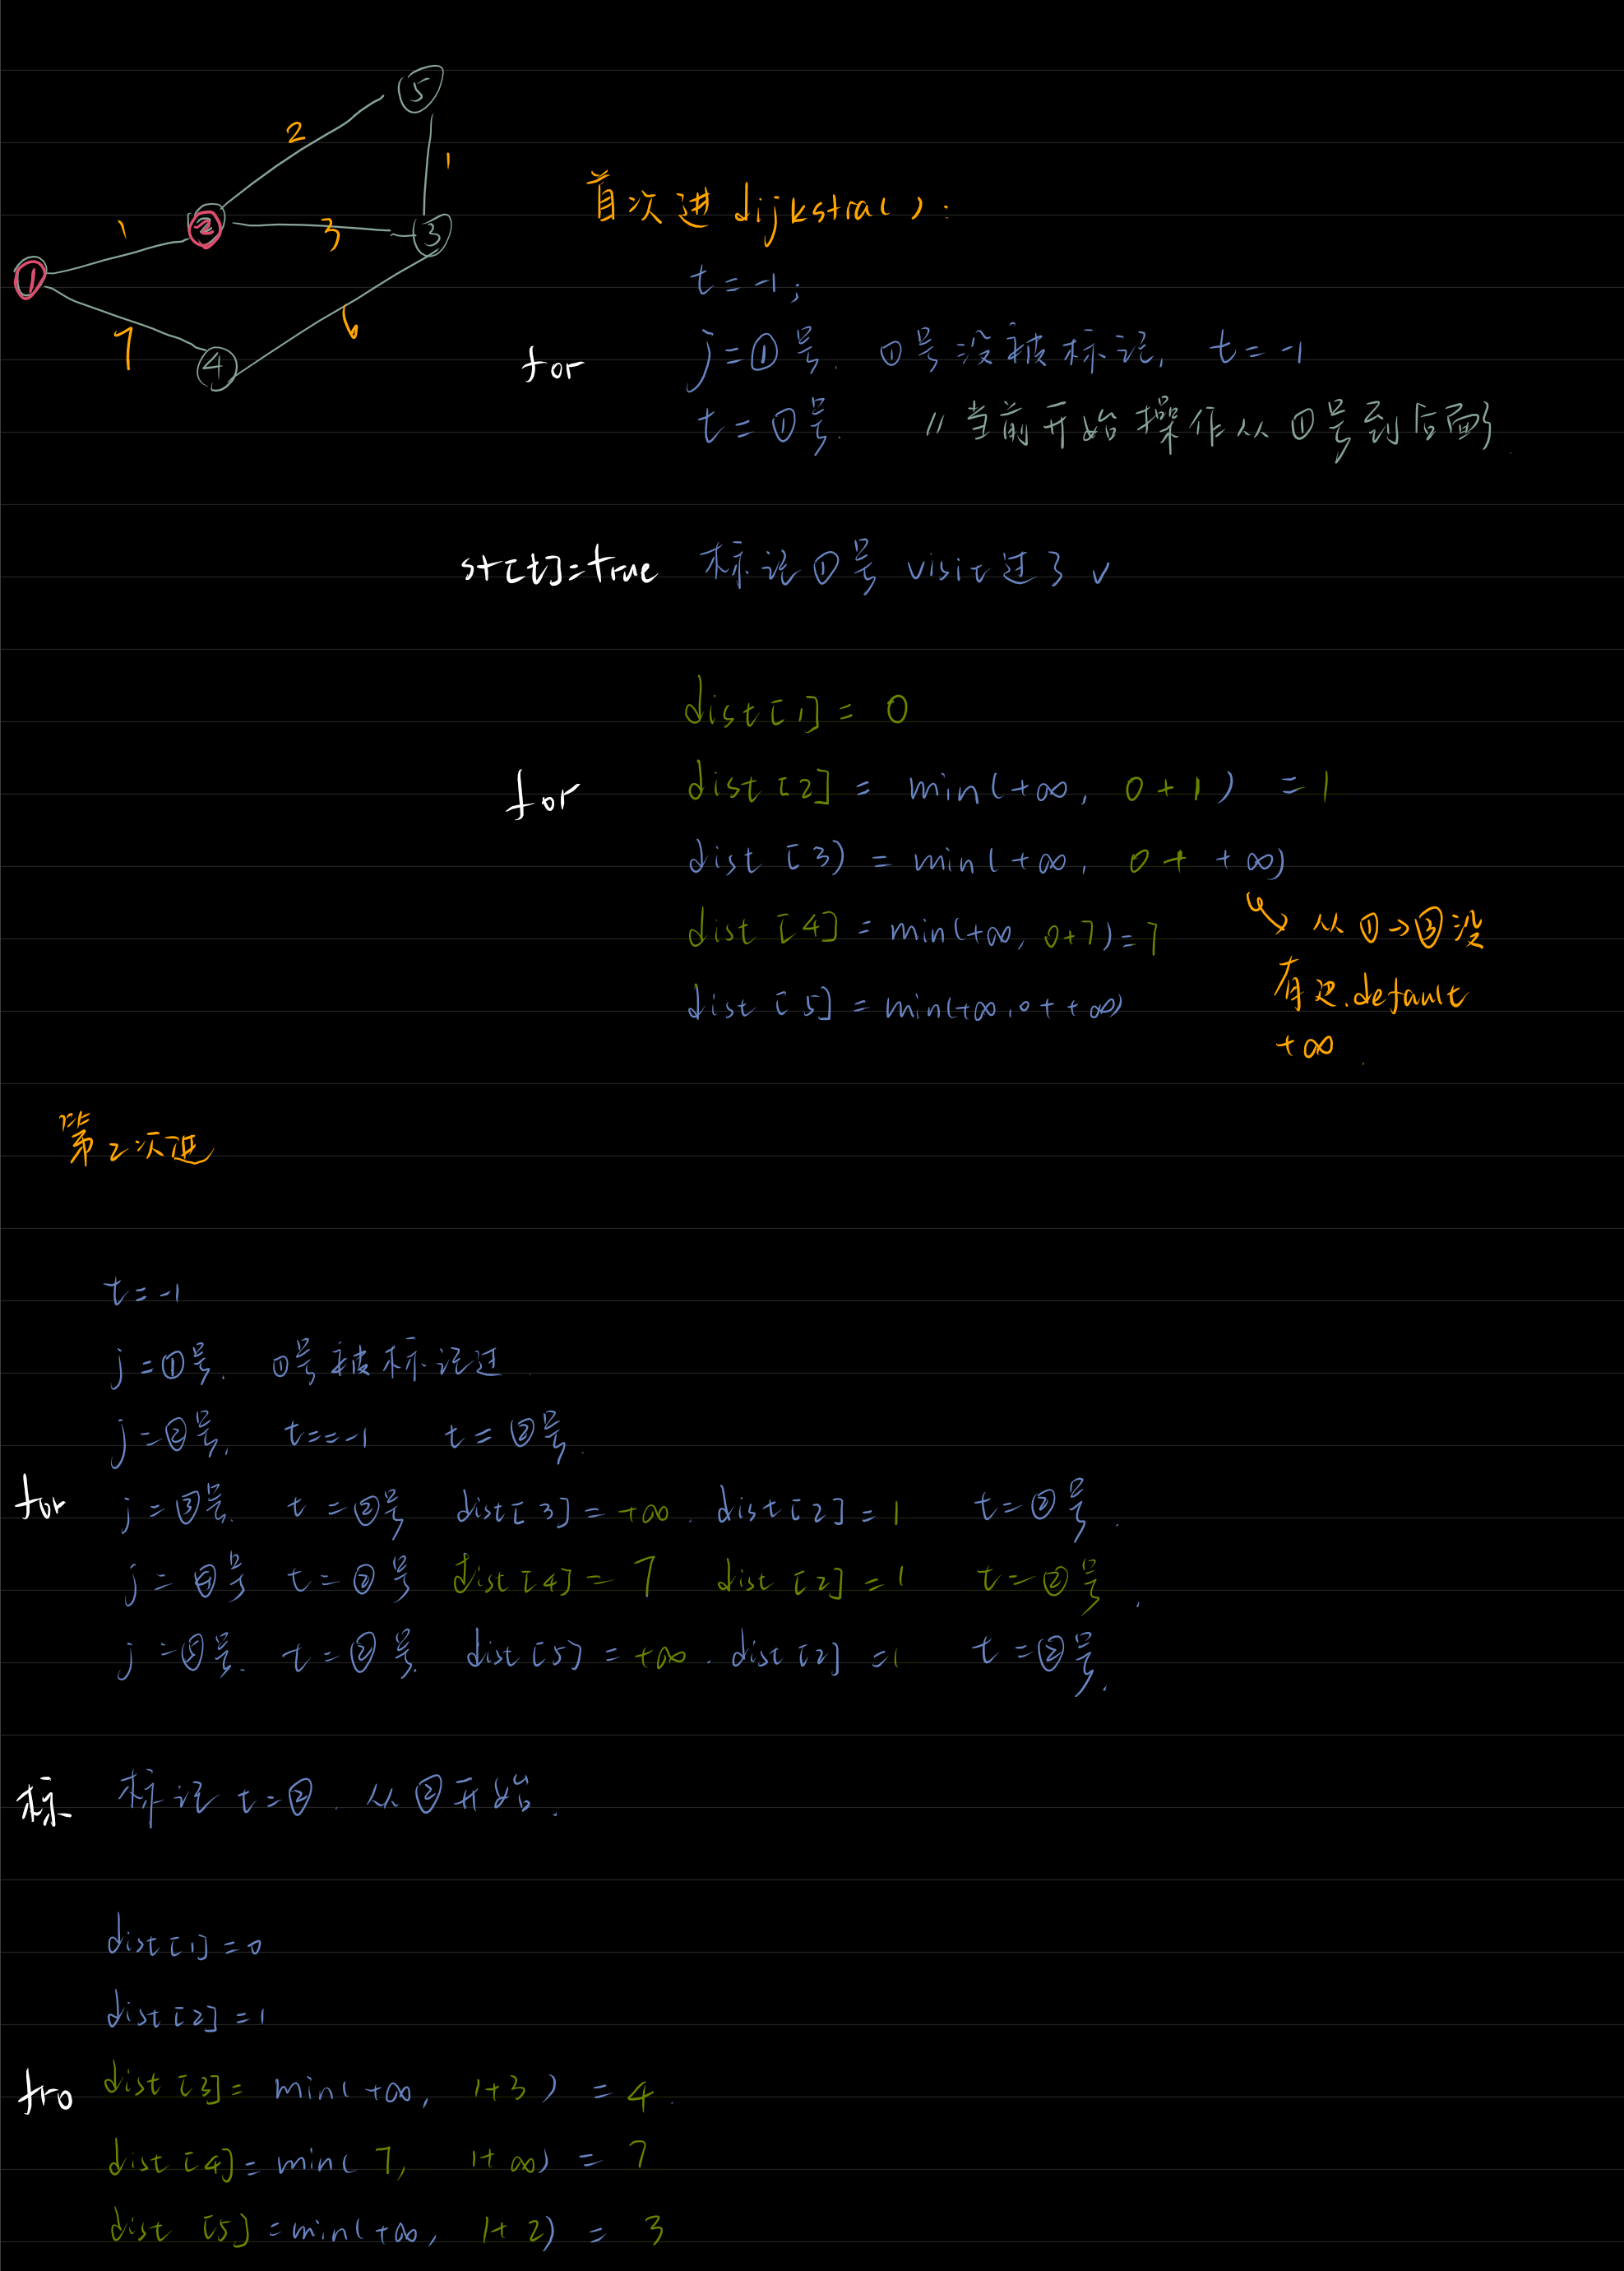 ⑤
2
1
首次进 dijkstra():
1
②
3
③
①
t = -1;
7
6
④
for
j = ①号. ①号没被标记, t = -1
t = ①号. // 当前开始操作从①号到后面
st[t]=true 标记①号 visit过了 √
dist[1] = 0
for
dist[2] = min(+∞, 0+1) = 1
dist[3) = min(+∞, 0+ +∞)
dist[4] = min(+∞, 0+7) = 7
从①→③没
有边.default
+∞
dist[5] = min(+∞, 0+ +∞)
第2次进
t = -1
j = ①号. ①号被标记过
j = ②号. t == -1 t = ②号.
for
j = ③号. t = ②号 dist[3] = +∞. dist[2] = 1 t = ②号.
j = ④号 t = ②号 dist[4] = 7 dist[2] = 1 t = ②号.
j = ⑤号. t = ②号. dist[5) = +∞. dist[2] = 1 t = ②号.
标 标记 t = ②. 从②开始.
dist[1] = 0
dist[2] = 1
fro dist[3] = min(+∞, 1+3) = 4.
dist[4] = min(7, 1+∞) = 7
dist[5] = min(+∞, 1+2) = 3